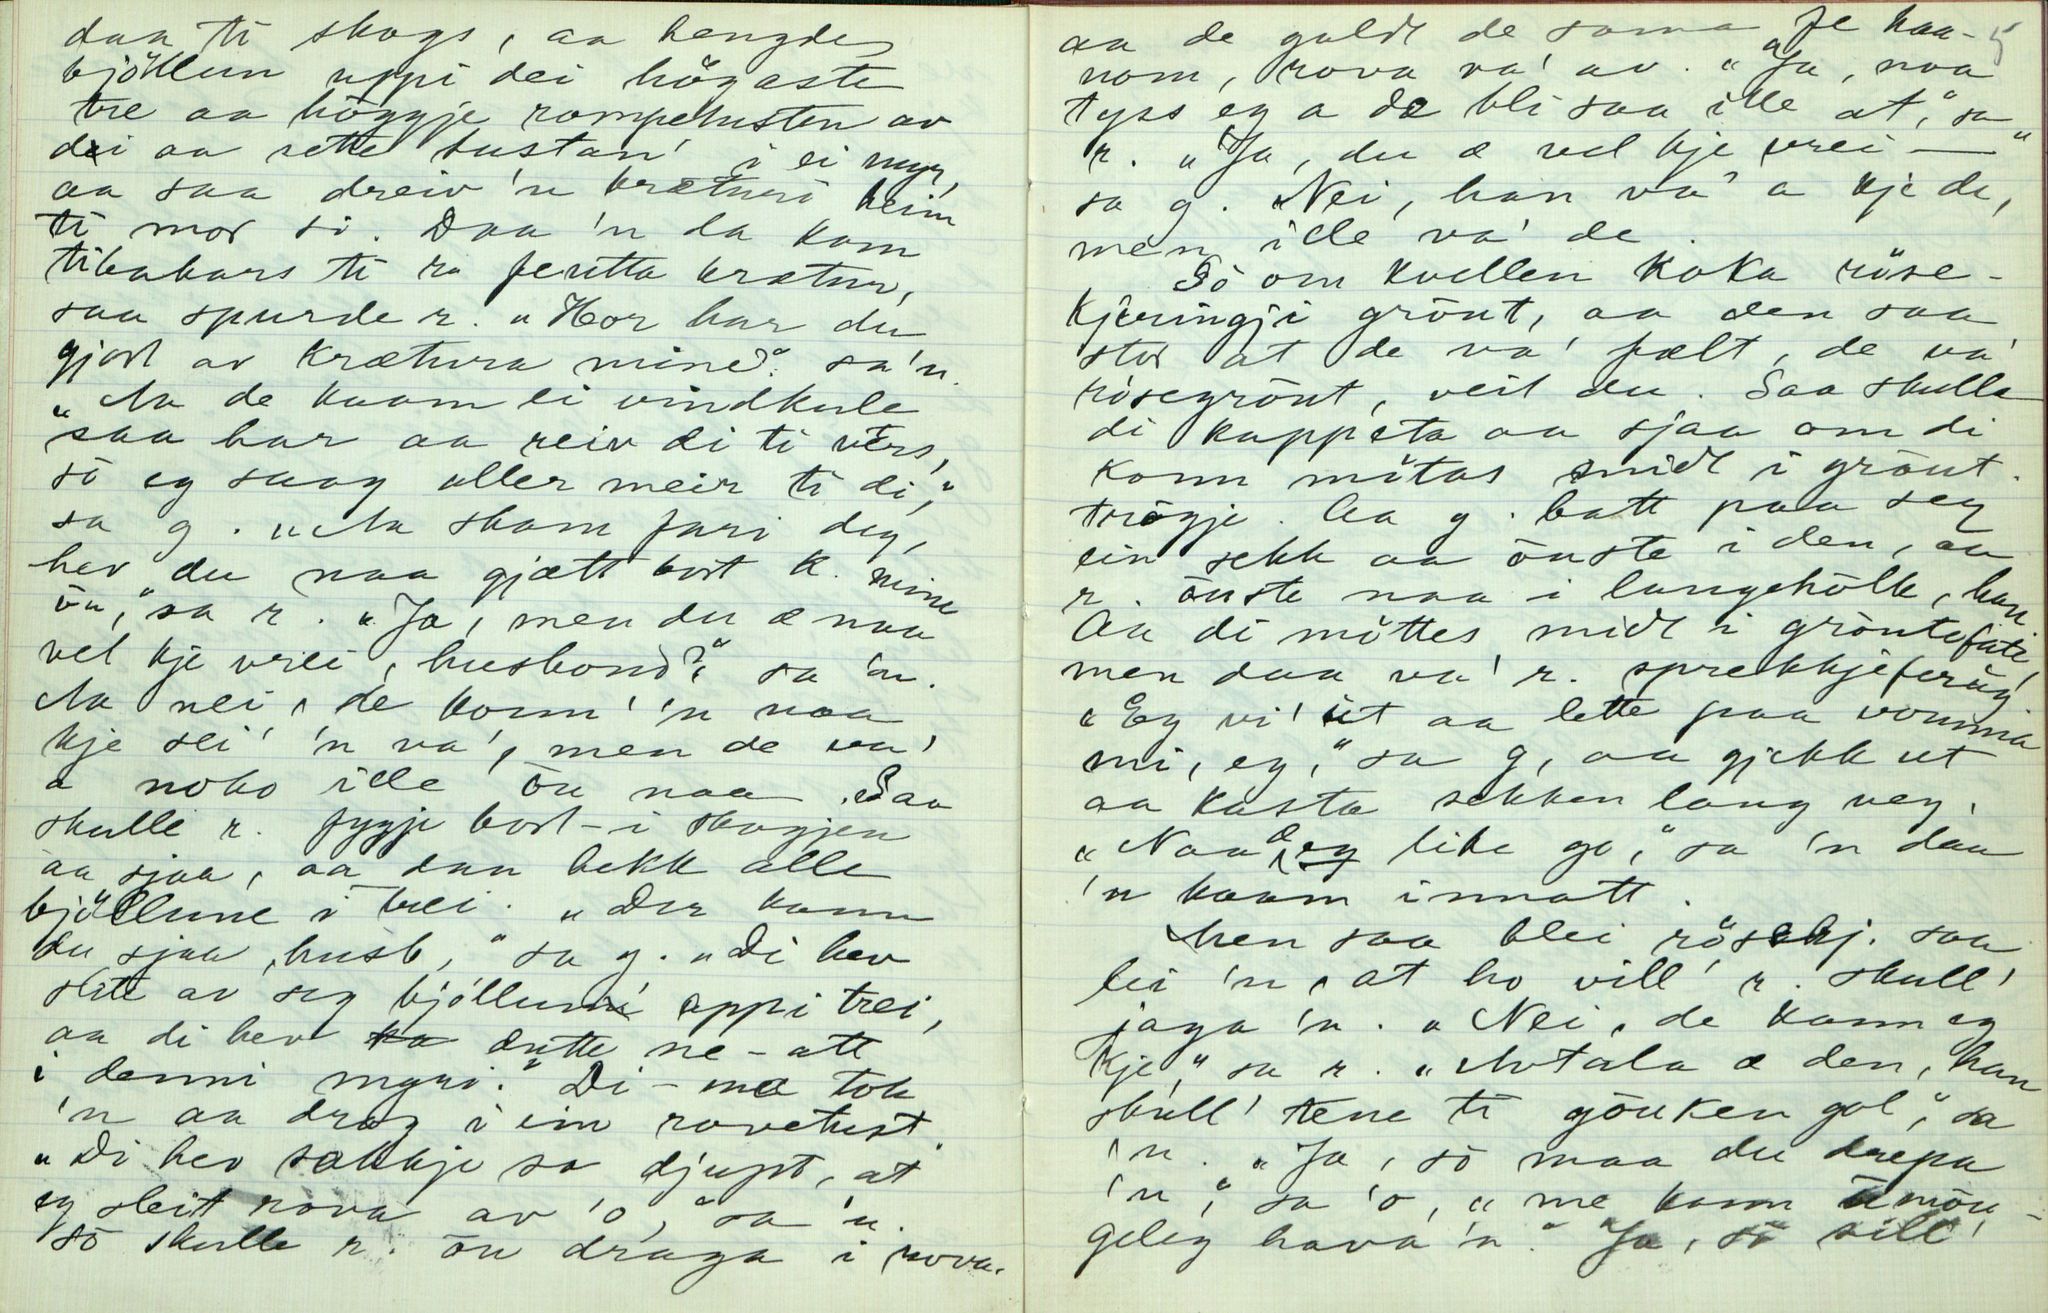 daa ti skogs, aa hengde
bjöllun uppi dei högaste
tre aa höggje rompetusten av
dei aa sette tustan' i ei myr,
aa saa dreiv 'n krætüri heim
ti mor si. Daa 'n da kom
tibakars ti r. feutta krætur,
saa spurde r. "Hor har du
gjort av krætura mine?" sa'n.
"Aa de kaam ei vindkule
saa har aa reiv di ti vers,
sö eg saag aller meir ti di,"
sa g. "Aa skam fari deg,
hev du naa gjætt bort k. mine
öu," sa r. "Ja, men du æ naa
vel kje vrei, husbond?" sa 'n.
Aa nei, de konn' 'n naa
kje sei' 'n va', men de va'
a noko ille öu naa. Saa
skulle r. fygje bort-i skogjen
aa sjaa, aa dan hekk alle
bjöllune i trei. "Der kann
du sjaa, husb," sa g. "Di hev
slite av seg bjöllunni uppi trei,
aa di hev dutte ne-att
i denni myri." Di-mæ tok
'n aa drog i ein rovetust
"Di hev sokkje so djupt, at
eg sleit rova av 'o," sa 'n.
Sö skulle r. öu draga i rova.
5
aa de galdt de sama fe haa-
nom, rova va' av. "Ja, naa
tyss eg a de bli saa ille at," sa
r. "Ja, du æ vel kje vrei —"
sa g. "Nei, han va' a kje de,
men ille va' de.
Sö om kvellen koka röse-
kjæringji gröut, aa den saa
stor at de va' fælt, de va'
rösegröut, veit du. Saa skulle
di kappeta aa sjaa om di
konn mötas midt i gröut-
trögje. Aa g. batt paa seg
ein sekk aa öuste i den, aa
r. öuste naa i langehölk, han
Aa di möttes midt i gröutefate,
men daa va' r. sprekkjeferüg
"Eg vi' üt aa lette paa vomma
mi, eg," sa g, aa gjekk ut
aa kasta sekken lang veg.
"Naa æ eg like go," sa 'n daa
'n kaam innatt.
Men saa blei rösekj. saa
lei 'n, at ho vill' r. skull'
jaga 'n. "Nei, de kann eg
kje," sa r. "Avtala æ den, han
skull' tene ti göuken gol," sa
'n. "Ja, sö maa du drepa
'n," sa 'o, "me kann ümöu-
geleg hava 'n." "Ja, sö vill'